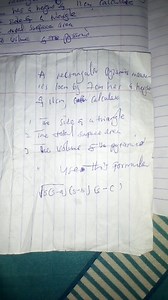 of 11cm Calculate
Side of a triangle
surface area
Volume of the pyramid
A rectangular pyramid
by 7cm has a height
of 11cm Calculate
1 The side of a triangle
2 The total surface area
3 The volume of the pyramid
use this formula
√s(s-a)(s-b)(s-c)